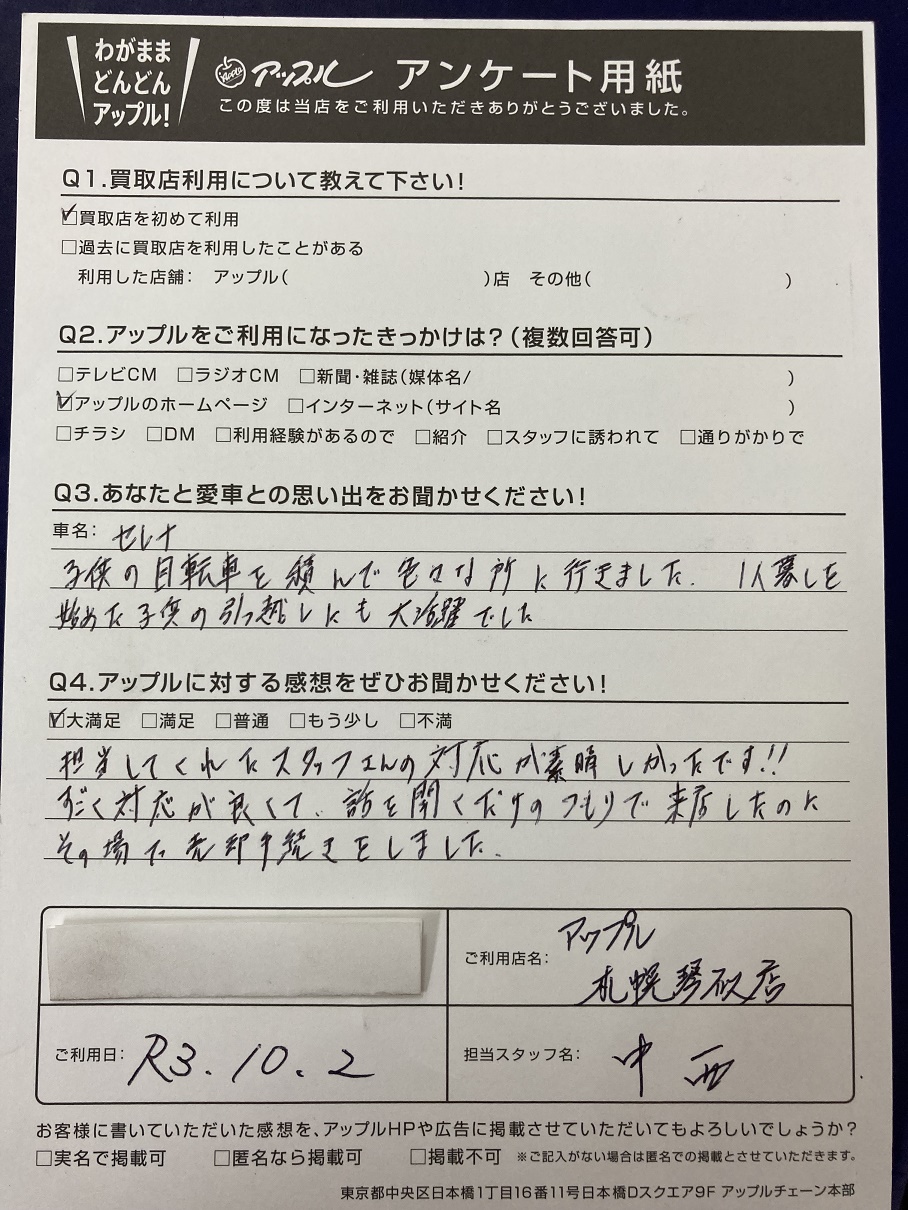 わがまま
どんどん
アップル!
Apple アップル アンケート用紙
この度は当店をご利用いただきありがとうございました。
Q1.買取店利用について教えて下さい!
☑買取店を初めて利用
□過去に買取店を利用したことがある
利用した店舗： アップル( )店 その他( )
Q2.アップルをご利用になったきっかけは?(複数回答可)
□テレビCM □ラジオCM □新聞・雑誌(媒体名/ )
☑アップルのホームページ □インターネット(サイト名 )
□チラシ □DM □利用経験があるので □紹介 □スタッフに誘われて □通りがかりで
Q3.あなたと愛車との思い出をお聞かせください!
車名： セレナ
子供の自転車を積んで色々な所に行きました. 1人暮しを
始めた子供の引っ越しにも大活躍でした
Q4.アップルに対する感想をぜひお聞かせください!
☑大満足 □満足 □普通 □もう少し □不満
担当してくれたスタッフさんの対応が素晴しかったです!!
すごく対応が良くて、話を聞くだけのつもりで来店したのに
その場で売却手続きをしました.
ご利用店名： アップル
札幌琴似店
ご利用日： R3.10.2
担当スタッフ名： 中西
お客様に書いていただいた感想を、アップルHPや広告に掲載させていただいてもよろしいでしょうか?
□実名で掲載可 □匿名なら掲載可 □掲載不可 ※ご記入がない場合は匿名での掲載とさせていただきます。
東京都中央区日本橋1丁目16番11号日本橋Dスクエア9F アップルチェーン本部